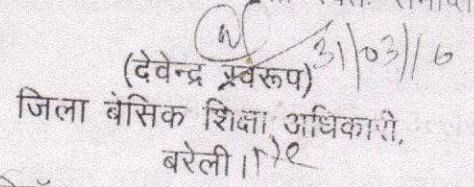 31/03/16
(देवेन्द्र स्वरूप)
जिला बेसिक शिक्षा अधिकारी,
बरेली।